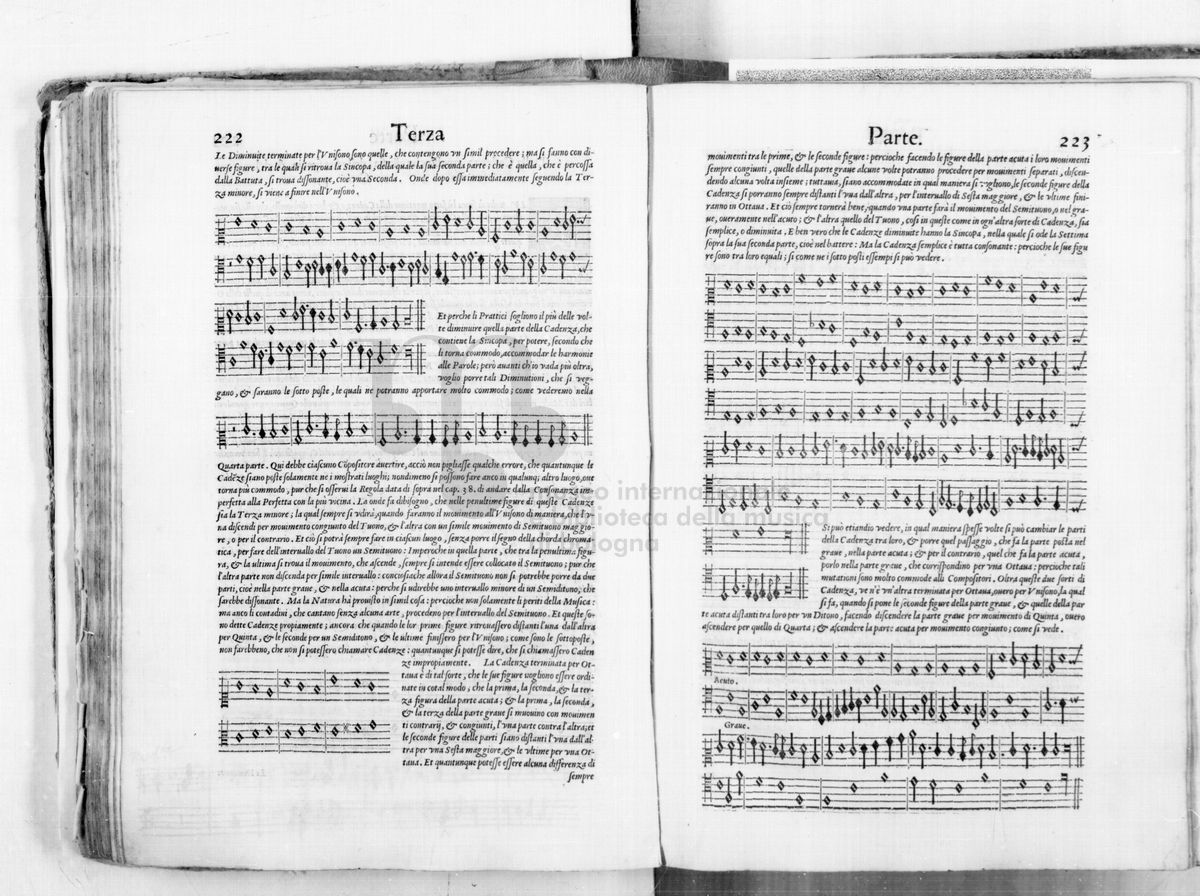 222 Terza
Le Diminuite terminate per l'Vnisono sono quelle, che contengono vn simil procedere; ma si fanno con di-
uerse figure, tra le quali si ritroua la Sincopa, della quale la sua seconda parte; che è quella, che è percossa
dalla Battuta, si troua dissonante, cioè vna Seconda. Onde dopo essa immediatamente seguendo la Ter-
za minore, si viene a finire nell'Vnisono.
Et perche li Prattici sogliono il più delle vol-
te diminuire quella parte della Cadenza, che
contiene la Sincopa, per potere, secondo che
li torna commodo, accommodar le harmonie
alle Parole; però auanti ch'io vada più oltra,
voglio porre tali Diminutioni, che si veg-
gano, & saranno le sotto poste, le quali ne potranno apportare molto commodo; come vederemo nella
Quarta parte. Qui debbe ciascuno Cōpositore auertire, acciò non pigliasse qualche errore, che quantunque le
Cadēze siano poste solamente ne i mostrati luoghi; nondimeno si possono fare anco in qualunq; altro luogo, oue
torna più commodo, pur che si osserui la Regola data di sopra nel cap. 38. di andare dalla Consonanza im-
perfetta alla Perfetta con la più vicina. La onde fa dibisogno, che nelle penultime figure di queste Cadenze
sia la Terza minore; la qual sempre si vdirà, quando faranno il mouimento all'Vnisono di maniera, che l'v-
na discendi per mouimento congiunto del Tuono, & l'altra con un simile mouimento di Semituono maggio-
re, o per il contrario. Et ciò si potrà sempre fare in ciascun luogo, senza porre il segno della chorda chroma-
tica, per fare dell'interuallo del Tuono un Semituono: Imperoche in quella parte, che tra la penultima figu-
ra, & la ultima si troua il mouimento, che ascende, sempre si intende essere collocato il Semituono; pur che
l'altra parte non discenda per simile interuallo: conciosiache allora il Semituono non si potrebbe porre da due
parti, cioè nella parte graue, & nella acuta: perche si udirebbe uno interuallo minore di un Semiditono, che
sarebbe dissonante. Ma la Natura hà prouisto in simil cosa: percioche non solamente li periti della Musica:
ma anco li contadini, che cantano senza alcuna arte, procedono per l'interuallo del Semituono. Et queste so-
no dette Cadenze propiamente; ancora che quando le lor prime figure ritrouassero distanti l'una dall'altra
per Quinta, & le seconde per un Semiditono, & le ultime finissero per l'Vnisono; come sono le sottoposte,
non farebbeno, che non si potessero chiamare Cadenze: quantunque si potesse dire, che si chiamassero Caden
ze impropiamente. La Cadenza terminata per Ot-
taua è di tal sorte, che le sue figure vogliono essere ordi-
nate in cotal modo, che la prima, la seconda, & la ter-
za figura della parte acuta; & la prima, la seconda,
& la terza della parte graue si muouino con mouimen
ti contrarij, & congiunti, l'vna parte contra l'altra; et
le seconde figure delle parti siano distanti l'vna dall'al-
tra per vna Sesta maggiore, & le vltime per vna Ot-
taua. Et quantunque potesse essere alcuna differenza di
sempre
Parte. 223
mouimenti tra le prime, & le seconde figure: percioche facendo le figure della parte acuta i loro mouimenti
sempre congiunti, quelle della parte graue alcune volte potranno procedere per mouimenti separati, discen-
dendo alcuna volta insieme; tuttauia, siano accommodate in qual maniera si vogliono, le seconde figure della
Cadenza si porranno sempre distanti l'vna dall'altra, per l'interuallo di Sesta maggiore, & le vltime fini-
ranno in Ottaua. Et ciò sempre tornerà bene, quando vna parte farà il mouimento del Semituono, o nel gra-
ue, oueramente nell'acuto; & l'altra quello del Tuono, così in queste come in ogn'altra sorte di Cadenza, sia
semplice, o diminuita. E ben vero che le Cadenze diminuite hanno la Sincopa, nella quale si ode la Settima
sopra la sua seconda parte, cioè nel battere: Ma la Cadenza semplice è tutta consonante: percioche le sue figu
re sono tra loro equali; si come ne i sotto posti essempi si può vedere.
Si può etiandio vedere, in qual maniera spesse volte si può cambiar le parti
della Cadenza tra loro, & porre quel passaggio, che fa la parte posta nel
graue, nella parte acuta; & per il contrario, quel che fa la parte acuta,
porlo nella parte graue, che corrispondino per vna Ottaua: percioche tali
mutationi sono molto commode alli Compositori. Oltra queste due sorti di
Cadenza, ve n'è vn'altra terminata per Ottaua, ouero per Vnisono, la qual
si fa, quando si pone le seconde figure della parte graue, & quelle della par
te acuta distanti tra loro per vn Ditono, facendo discendere la parte graue per mouimento di Quinta, ouero
ascendere per quello di Quarta; & ascendere la parte acuta per mouimento congiunto; come si vede.
Acuto.
Graue.
museo internazionale
e biblioteca della musica
di bologna